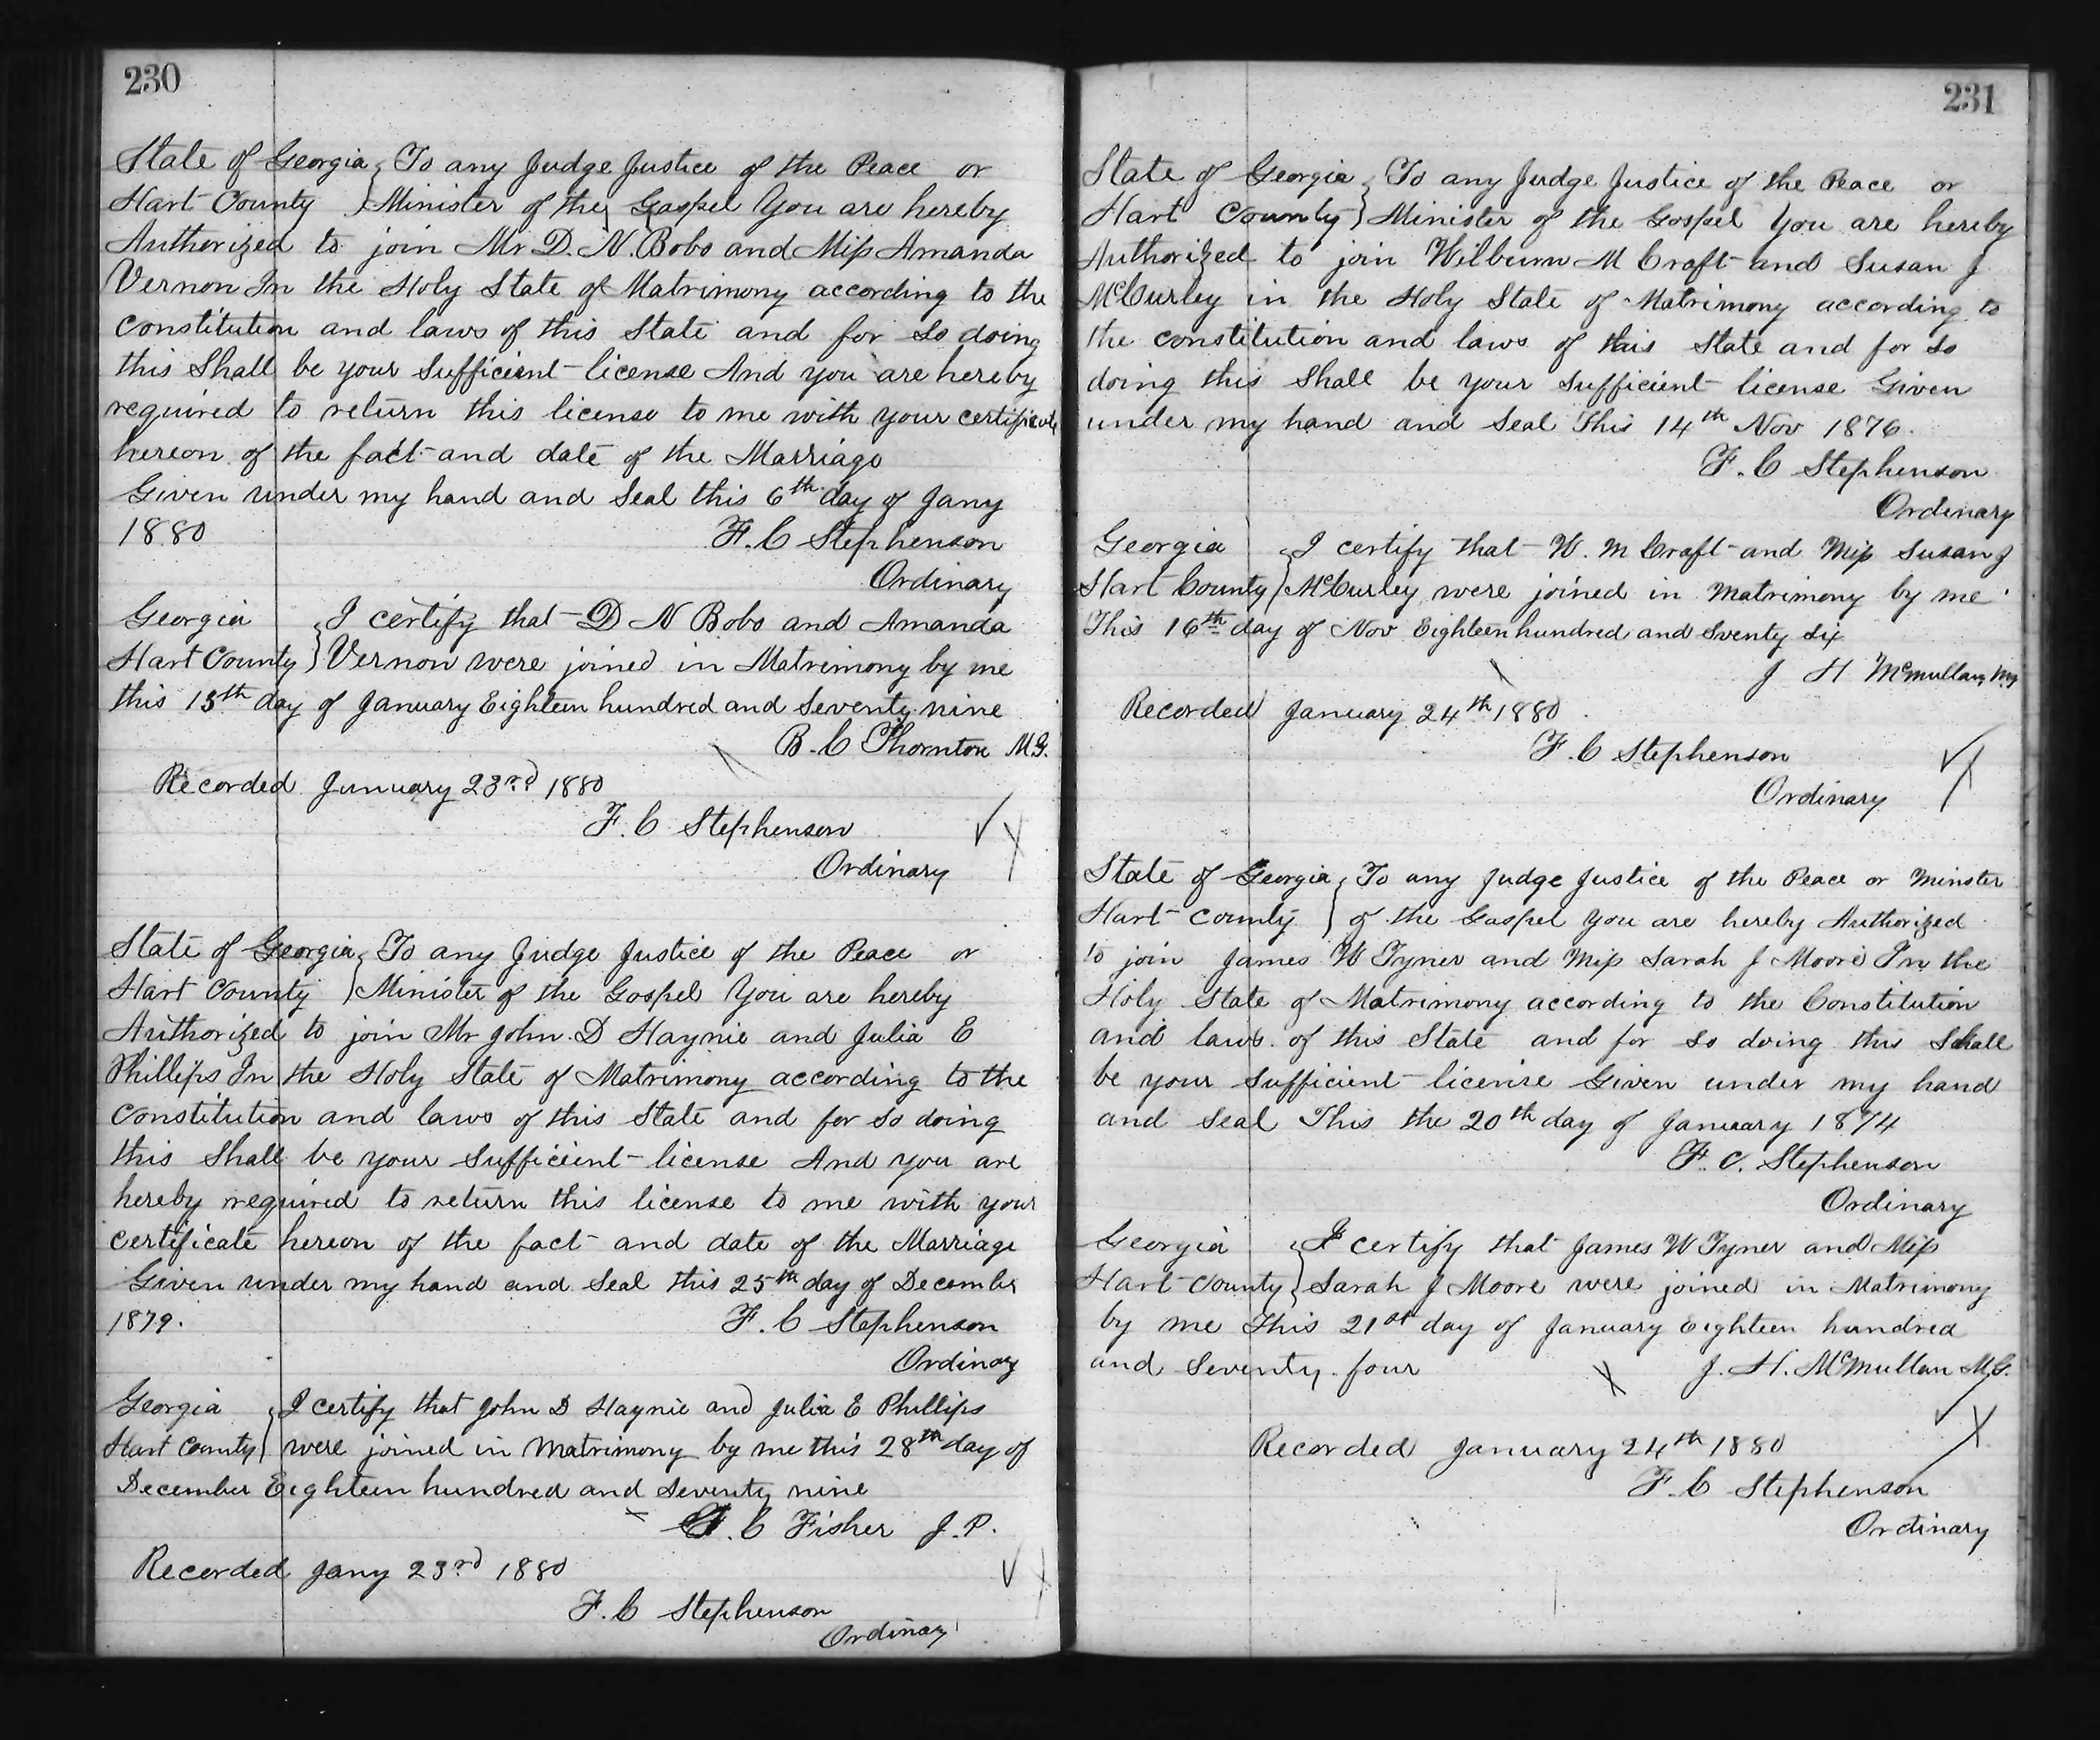 230
State of Georgia } To any Judge Justice of the Peace or
Hart County } Minister of the Gospel You are hereby
Authorized to join Mr D. N. Bobo and Miss Amanda
Vernon In the Holy State of Matrimony according to the
constitution and laws of this State and for so doing
this Shall be your Sufficient license And you are hereby
required to return this license to me with your certificate
hereon of the fact and date of the Marriage
Given under my hand and Seal this 6th day of Jany
1880 F. C Stephenson
Ordinary
Georgia } I certify that D N Bobo and Amanda
Hart County } Vernon were joined in Matrimony by me
this 15th day of January Eighteen hundred and Seventy nine
B. C Thornton M.G.
Recorded January 23rd 1880
F. C Stephenson
Ordinary
State of Georgia } To any Judge Justice of the Peace or
Hart County } Minister of the Gospel You are hereby
Authorized to join Mr John D Haynie and Julia E
Phillips In the Holy State of Matrimony according to the
constitution and laws of this State and for so doing
this Shall be your Sufficient license And you are
hereby required to return this license to me with your
certificate hereon of the fact and date of the Marriage
Given under my hand and Seal this 25th day of December
1879. F. C Stephenson
Ordinary
Georgia } I certify that John D Haynie and Julia E Phillips
Hart County } were joined in Matrimony by me this 28th day of
December Eighteen hundred and Seventy nine
C Fisher J. P.
Recorded Jany 23rd 1880
F. C Stephenson
Ordinary
231
State of Georgia } To any Judge Justice of the Peace or
Hart County } Minister of the Gospel You are hereby
Authorized to join Wilburn M Craft and Susan J
McCurley in the Holy State of Matrimony according to
the constitution and laws of this State and for so
doing this Shall be your Sufficient license Given
under my hand and Seal This 14th Nov 1876.
F. C Stephenson
Ordinary
Georgia } I certify that W. M Craft and Miss Susan J
Hart County } McCurley were joined in Matrimony by me
This 16th day of Nov Eighteen hundred and Sventy Six
J H McMullan MG
Recorded January 24th 1880
F. C Stephenson
Ordinary
State of Georgia } To any Judge Justice of the Peace or Minster
Hart County } of the Gospel You are hereby Authorized
to join James W Tyner and Miss Sarah J Moore In the
Holy State of Matrimony according to the Constitution
and laws of this State and for so doing this Shall
be your Sufficient license Given under my hand
and Seal This the 20th day of January 1874
F. C. Stephenson
Ordinary
Georgia } I certify that James W Tyner and Miss
Hart County } Sarah J Moore were joined in Matrimony
by me This 21st day of January Eighteen hundred
and Seventy four J. H. McMullan M.G.
Recorded January 24th 1880
F. C Stephenson
Ordinary